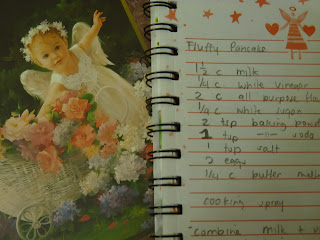 Fluffy Pancake
1 1/2 c milk
1/4 c white vinegar
2 c all purpose flou
1/4 c white sugar
2 tsp baking powd
1 tsp -"- soda
1 tsp salt
2 eggs
1/4 c butter mel
cooking spray
Combine milk & v